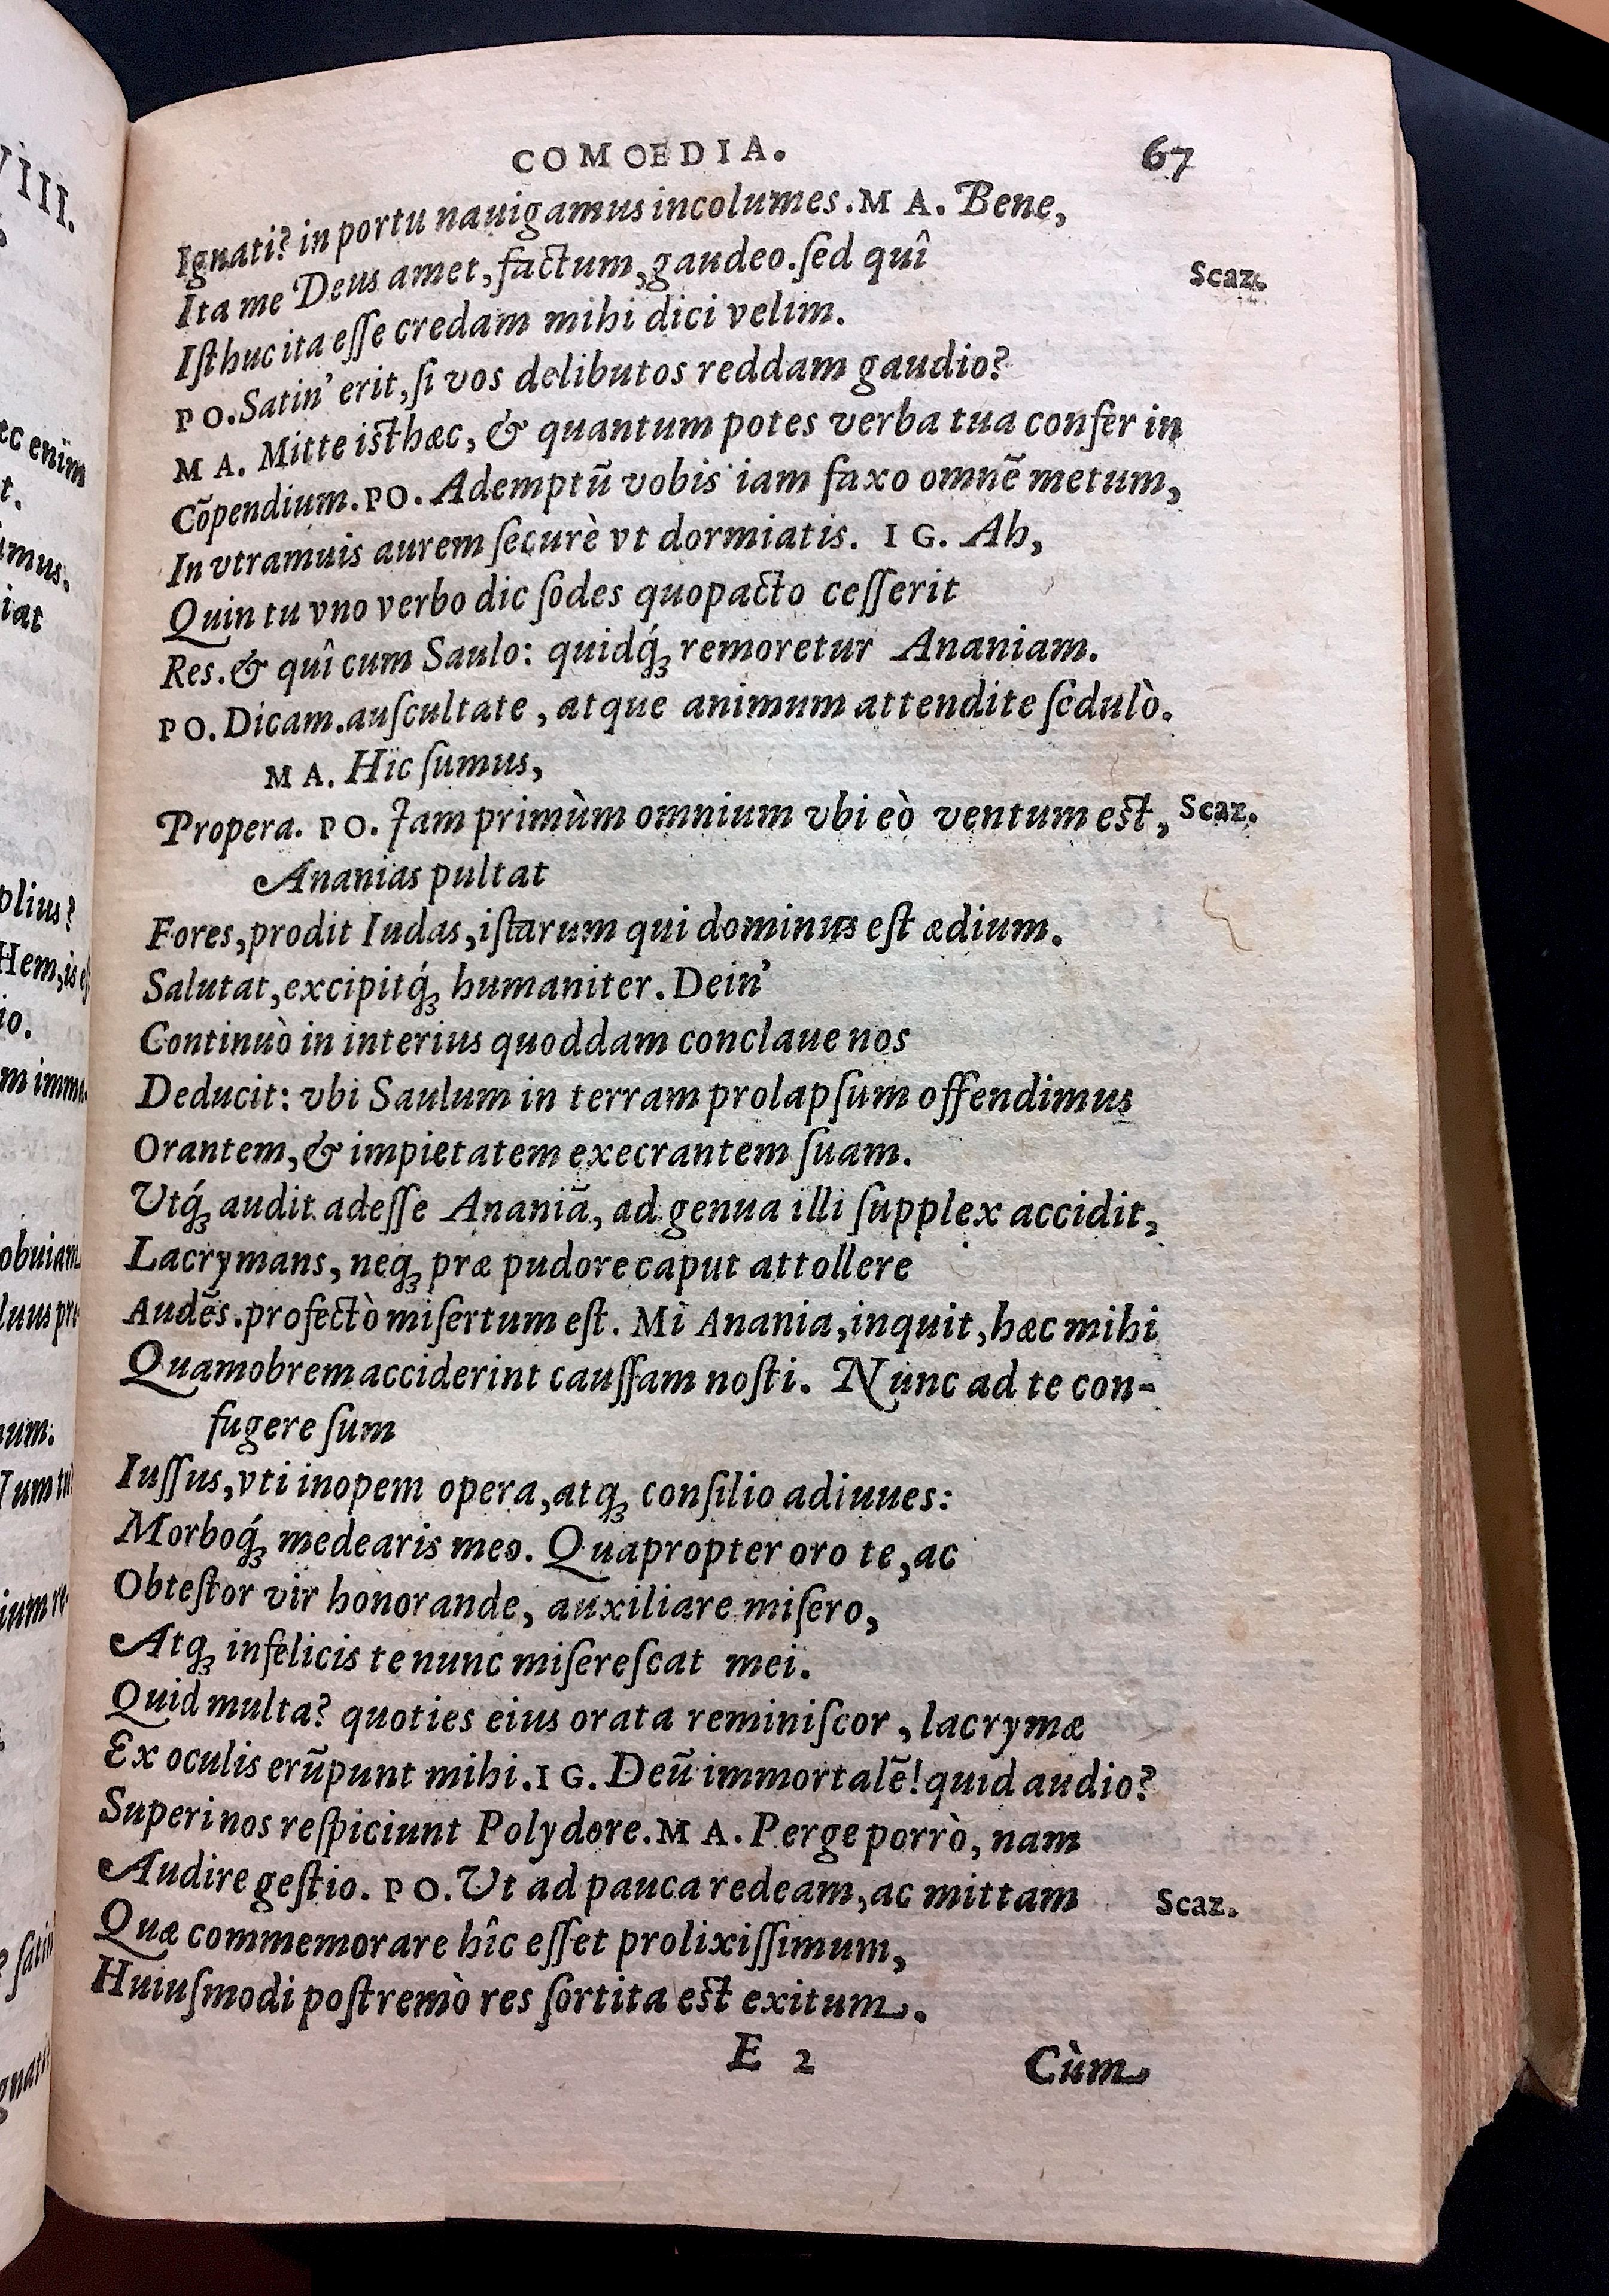 COMOEDIA. 67
Ignati? in portu nauigamus incolumes. MA. Bene,
Ita me Deus amet, factum, gaudeo. ſed quî
Scaz.
Iſthuc ita eſſe credam mihi dici velim.
PO. Satin' erit, ſi vos delibutos reddam gaudio?
MA. Mitte isthæc, & quantum potes verba tua confer in
Cõpendium. PO. Ademptũ vobis iam faxo omnẽ metum,
In vtramuis aurem ſecurè vt dormiatis. IG. Ah,
Quin tu vno verbo dic ſodes quopacto ceſſerit
Res. & quî cum Saulo: quidq́ꝫ remoretur Ananiam.
PO. Dicam. auſcultate, atque animum attendite ſedulò.
MA. Hic ſumus,
Propera. PO. Jam primùm omnium vbi eò ventum est, Scaz.
Ananias pultat
Fores, prodit Iudas, iſtarum qui dominus eſt ædium.
Salutat, excipitq́ꝫ humaniter. Dein'
Continuò in interius quoddam conclaue nos
Deducit: vbi Saulum in terram prolapſum offendimus
Orantem, & impietatem execrantem ſuam.
Utq́ꝫ audit adeſſe Ananiã, ad genua illi ſupplex accidit,
Lacrymans, neqꝫ præ pudore caput attollere
Audẽs. profectò miſertum eſt. Mi Anania, inquit, hæc mihi
Quamobrem acciderint cauſſam noſti. Nunc ad te con-
fugere ſum
Iuſſus, vti inopem opera, atqꝫ conſilio adiuues:
Morboq́ꝫ medearis meo. Quapropter oro te, ac
Obteſtor vir honorande, auxiliare miſero,
Atqꝫ infelicis te nunc miſereſcat mei.
Quid multa? quoties eius orata reminiſcor, lacrymæ
Ex oculis erũpunt mihi. IG. Deũ immortalẽ! quid audio?
Superi nos reſpiciunt Polydore. MA. Perge porrò, nam
Audire geſtio. PO. Ut ad pauca redeam, ac mittam Scaz.
Quæ commemorare hîc eſſet prolixiſſimum,
Huiuſmodi poſtremò res ſortita est exitum.
E 2 Cùm